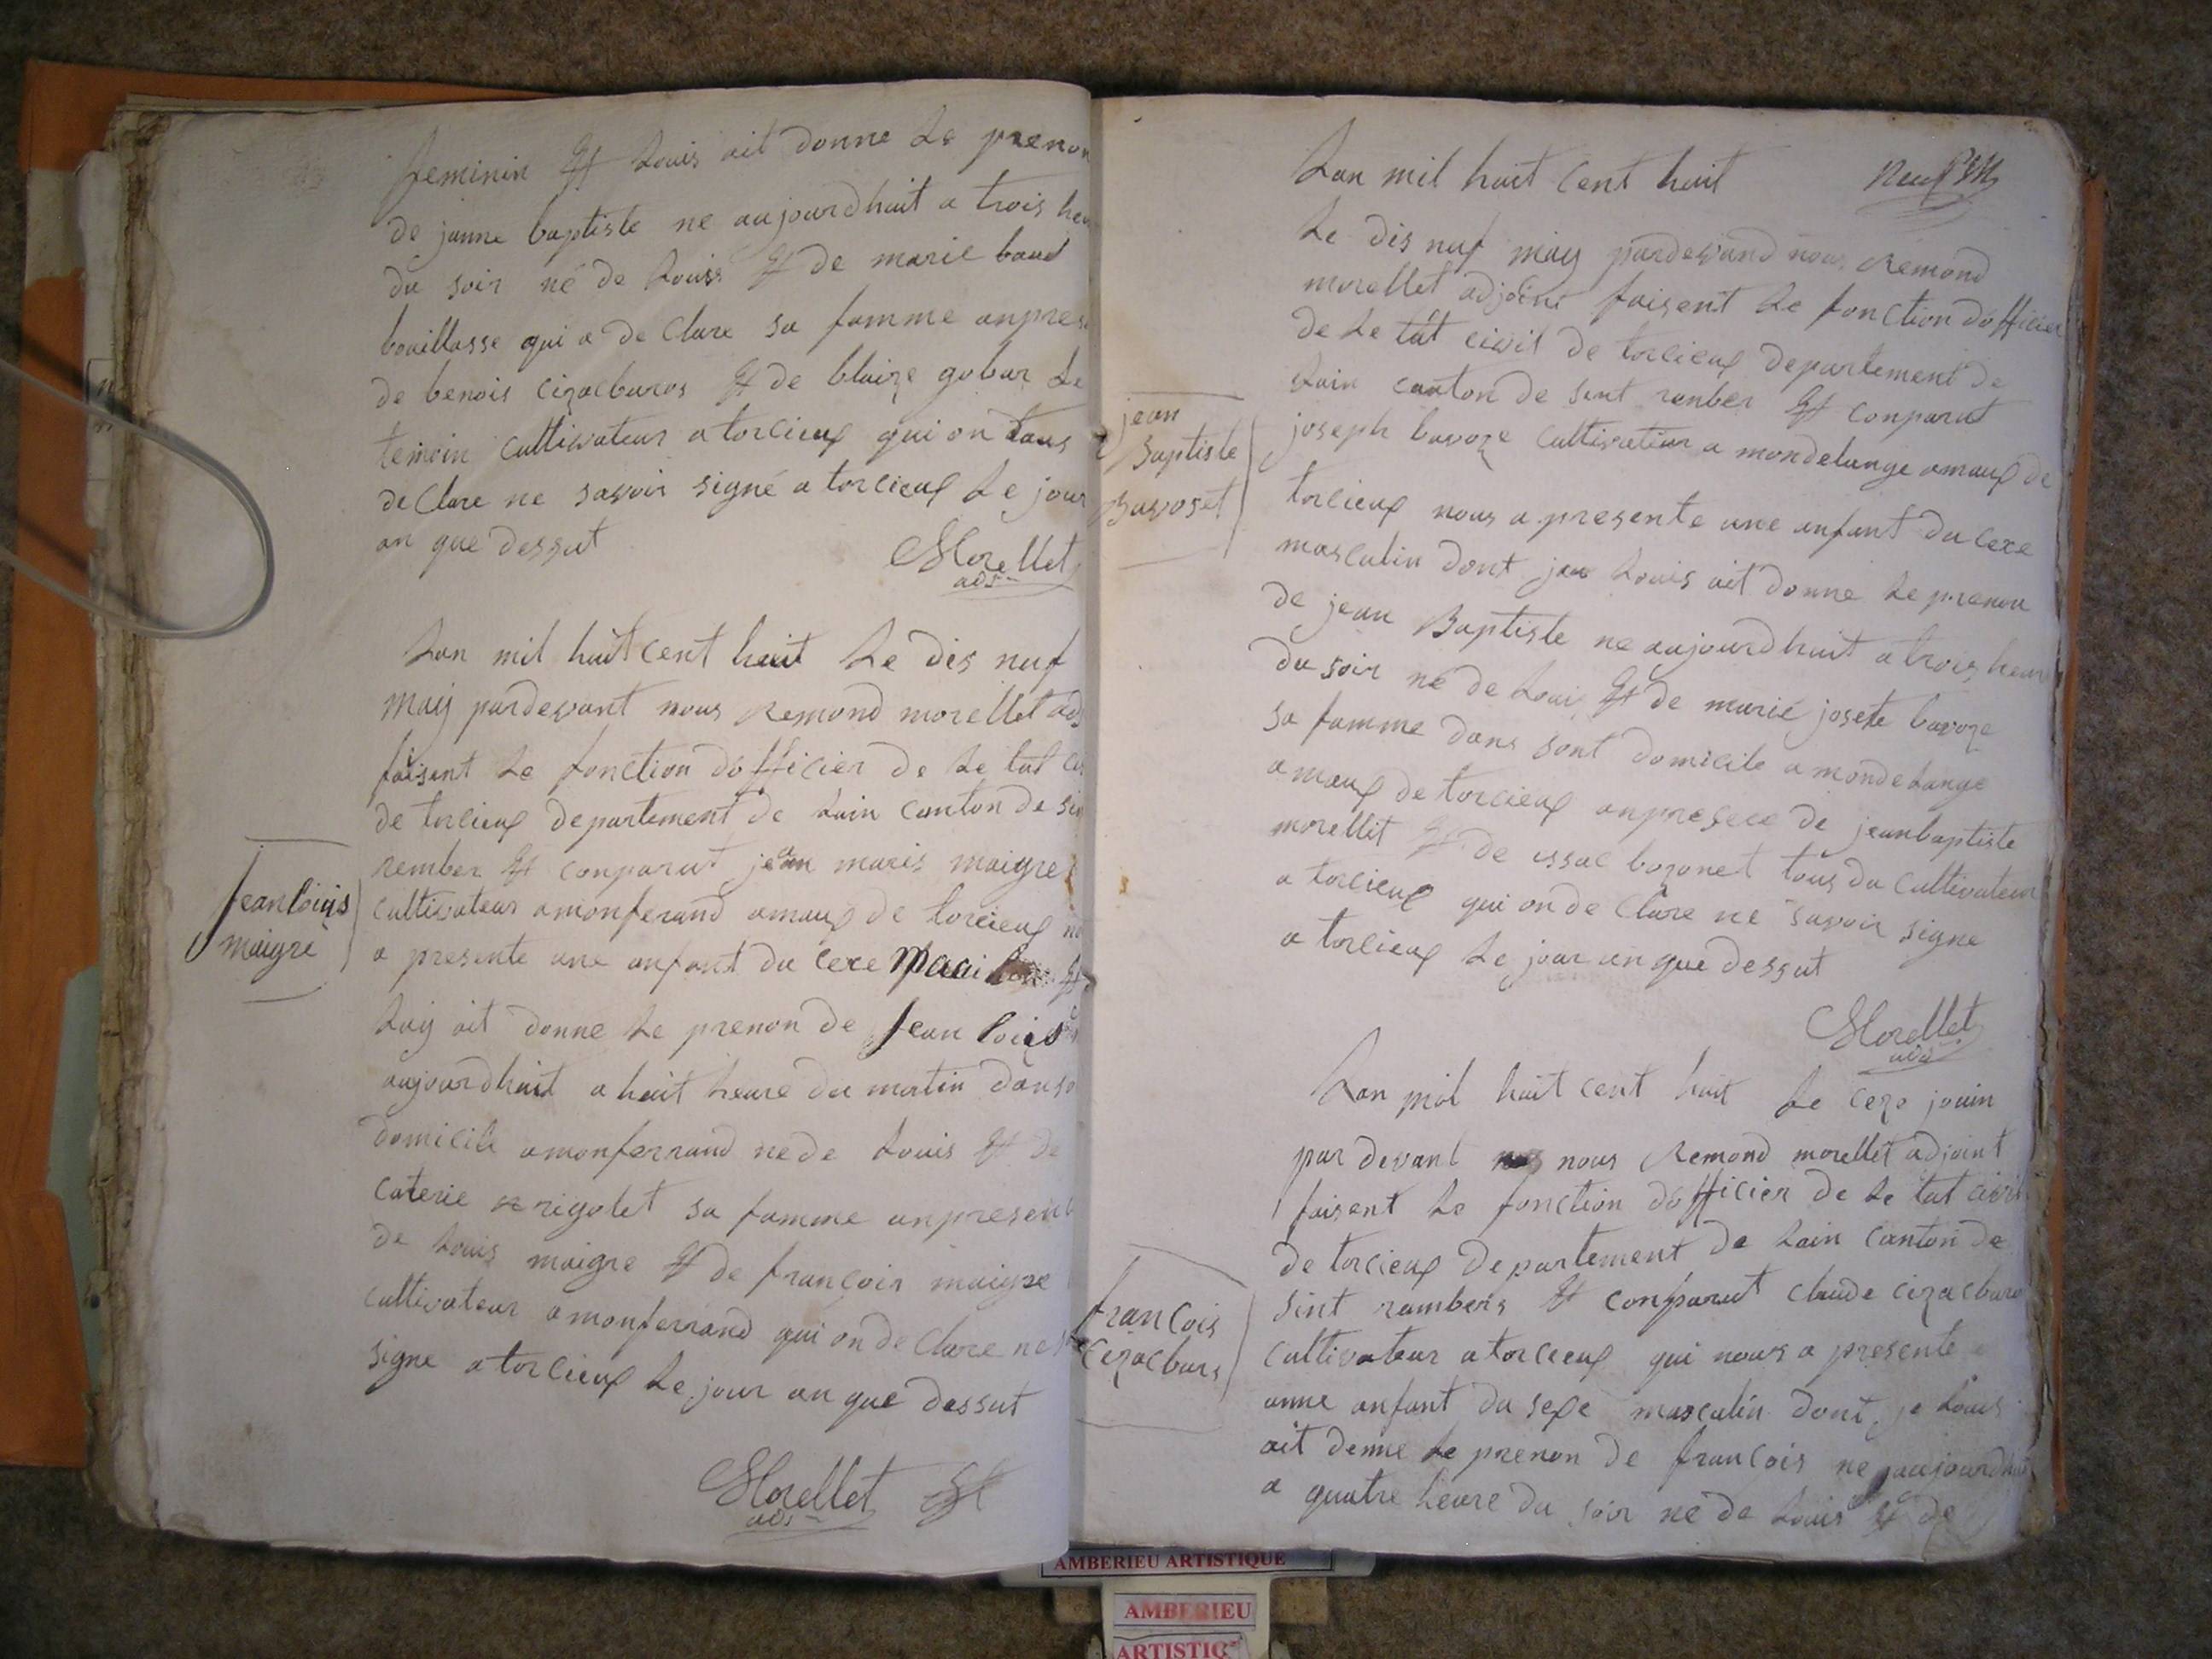 feminin Et Louis ait donne Le prenon
de janne baptiste ne aujourdhuit a trois heu
du soir né de Louis Et de marie baud
bouillasse qui a de Clare sa famme anprese
de benois Cizacburos Et de blaize gobar Le
temoin Cultivateur a torcieux qui on tous
de Clare ne savoir signé a torcieux Le jour
an que dessut
Morellet
adj
Lan mil huit Cent huit Le dis nuf
may pardevant nous Remond morellet adj
faisant Le fonction dofficier de Le tat ci
de torcieux departement de Lain Canton de sin
rember Et Conparut jean marie maigre
Jean loius
maigre
Cultivateur a monferand amaux de torcieux
a presente une anfant du Cexe Et
Luy ait donne Le prenon de Jean loius
aujourdhuit a huit heure du matin dans
domicile a monferrand ne de Louis Et de
Caterie rigolet sa famme anpresen
de Louis maigre Et de françois maigre
Cultivateur a monferrand qui on de Clare ne
signe a torcieux Le jour an que dessut
Morellet
adj
Lan mil huit Cent huit
neuf
Le dis nuf may pardevand nous Remond
morellet adjoint faisent Le fonction dofficier
de Le tat civil de torcieux departement de
Lain Canton de sint renber Et Conparut
jean
Baptiste
Bavoset
joseph bavoze Cultivateur a mondelange amaux de
torcieux nous a presente une anfant du Cexe
masculin dont Louis ait donne Le prenon
de jean Baptiste ne aujourdhuit a trois heure
du soir né de Louis Et de marie josete bavoze
sa famme dans sont domicile a mondelange
amaux de torcieux anpresece de jeanbaptiste
morellet Et de issac bozonet tous du Cultivateur
a torcieux qui on de Clare ne savoir signe
a torcieux Le jour an que dessut
Morellet
adj
Lan mil huit Cent huit Le Ceze jouin
par devant nous Remond morellet adjoint
faisent Le fonction dofficier de Le tat civil
de torcieux departement de Lain Canton de
sint rambers Et Conparut Claude Cizacburo
françois
Cizacburs
Cultivateur a torcieux qui nous a presente
unne anfant du sexe masculin dont je Louis
ait denne Le prenon de françois ne aujourdhuit
a quatre heure du soir né de Louis Et de
AMBERIEU ARTISTIQUE
AMBERIEU
ARTISTIQ